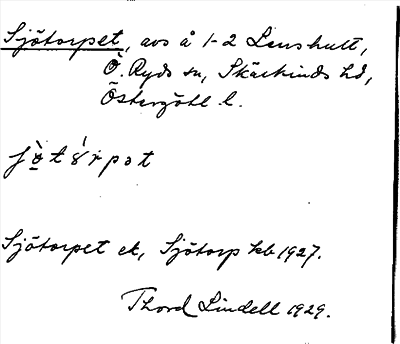 Sjötorpet, avs å 1-2 Lenshult,
Ö. Ryds sn, Skärkinds hd,
Östergötl l.
Sjötorpet ek, Sjötorp kb 1927.
Thord Lindell 1929.